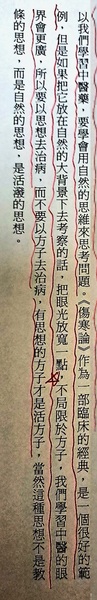 以我們學習中醫藥，要學會用自然的思維來思考問題。《傷寒論》作為一部臨床的經典，是一個很好的範
例，但是如果把它放在自然的大背景下去考察的話，把眼光放寬一點，不局限於方子，我們學習中醫的眼
界會更廣，所以要以思想去治病，而不要以方子去治病，有思想的方子才是活方子，當然這種思想不是教
條的思想，而是自然的思想，是活潑的思想。